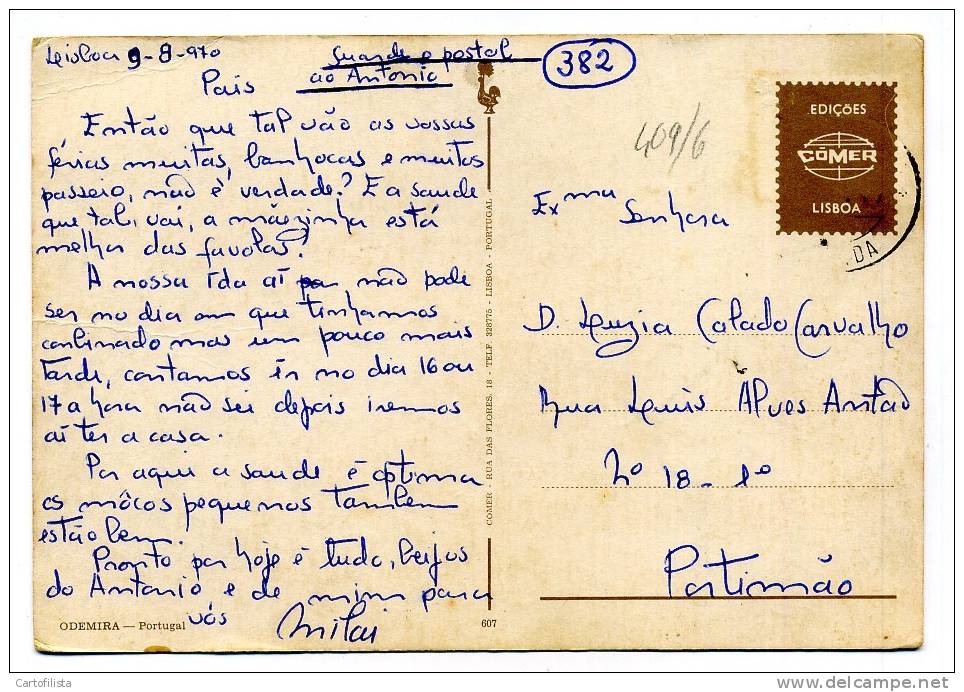 Lisboa 9-8-970
Guarde o postal
ao Antonio
382
Pais
Então que tal vão as vossas
férias muitas, banhocas e muitos
passeio, não é verdade? E a saude
que tal, vai, a mãezinha está
melhor das favolas?
A nossa Ida aí não pode
ser no dia em que tinhamos
conbinado mas um pouco mais
tarde, contamos ir no dia 16 ou
17 a hora não sei depois iremos
aí ter a casa.
Por aqui a saude é optima
os môcos pequenos tambem
estão bem.
Pronto por hoje é tudo, beijos
do Antonio e de mim para
vós
ODEMIRA — Portugal
607
COMER - RUA DAS FLORES, 18 - TELF. 328775 - LISBOA - PORTUGAL
409/6
EDIÇÕES
CÔMER
LISBOA
DA
Exma
Senhora
D. Luzia Calado Carvalho
Rua Luis Alves Antão
Nº 18 - 1º
Portimão
Cartofilista
www.delcampe.net